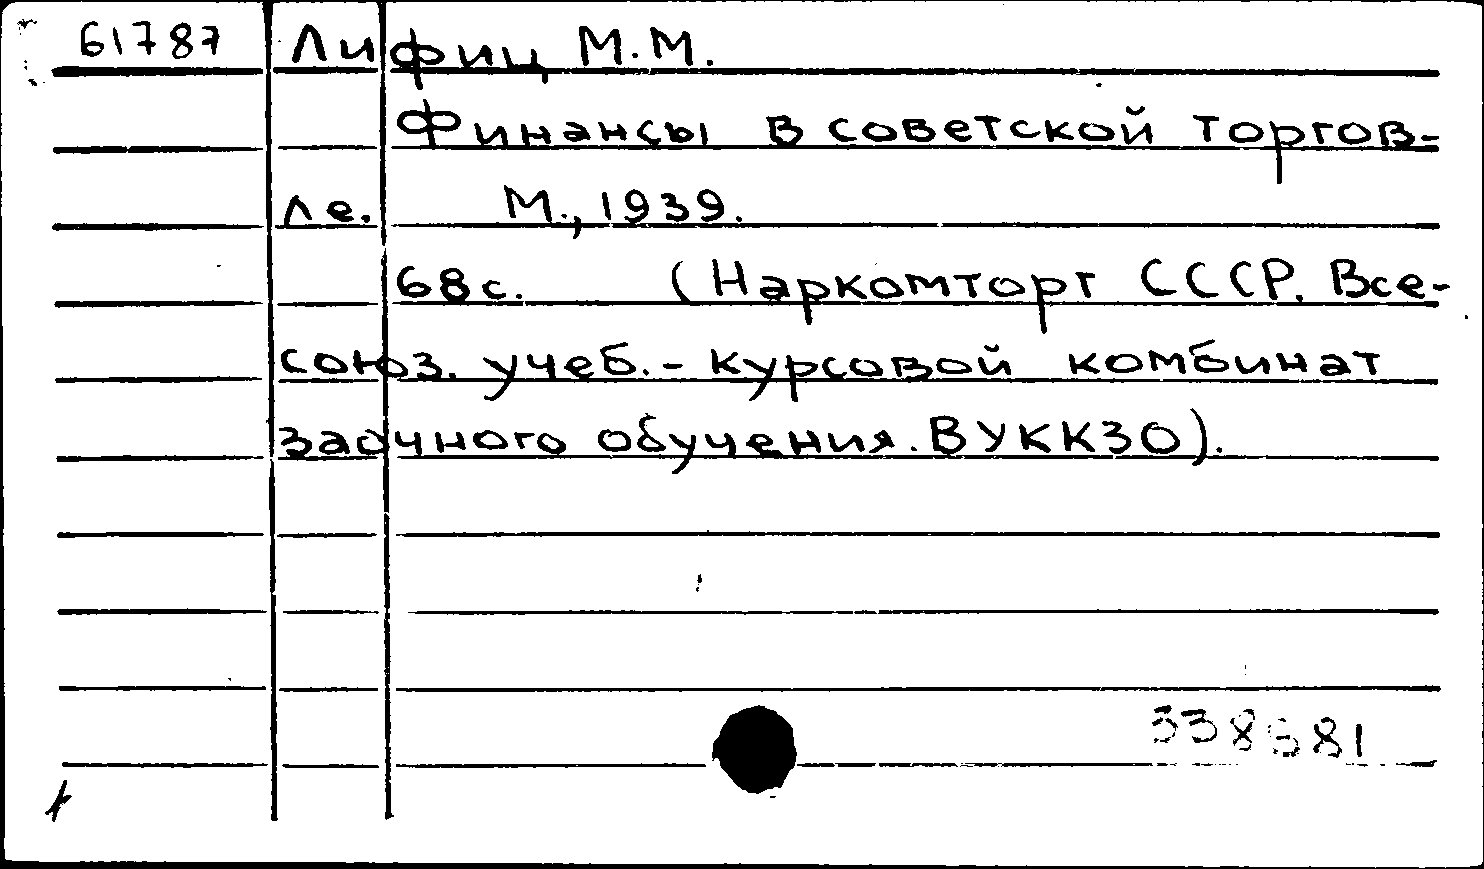 61787 Лифиц М.М.
Финансы в советской торгов-
ле. М., 1939.
68 с. (Наркомторг СССР. Все-
союз. учеб.-курсовой комбинат
заочного обучения. ВУККЗО).